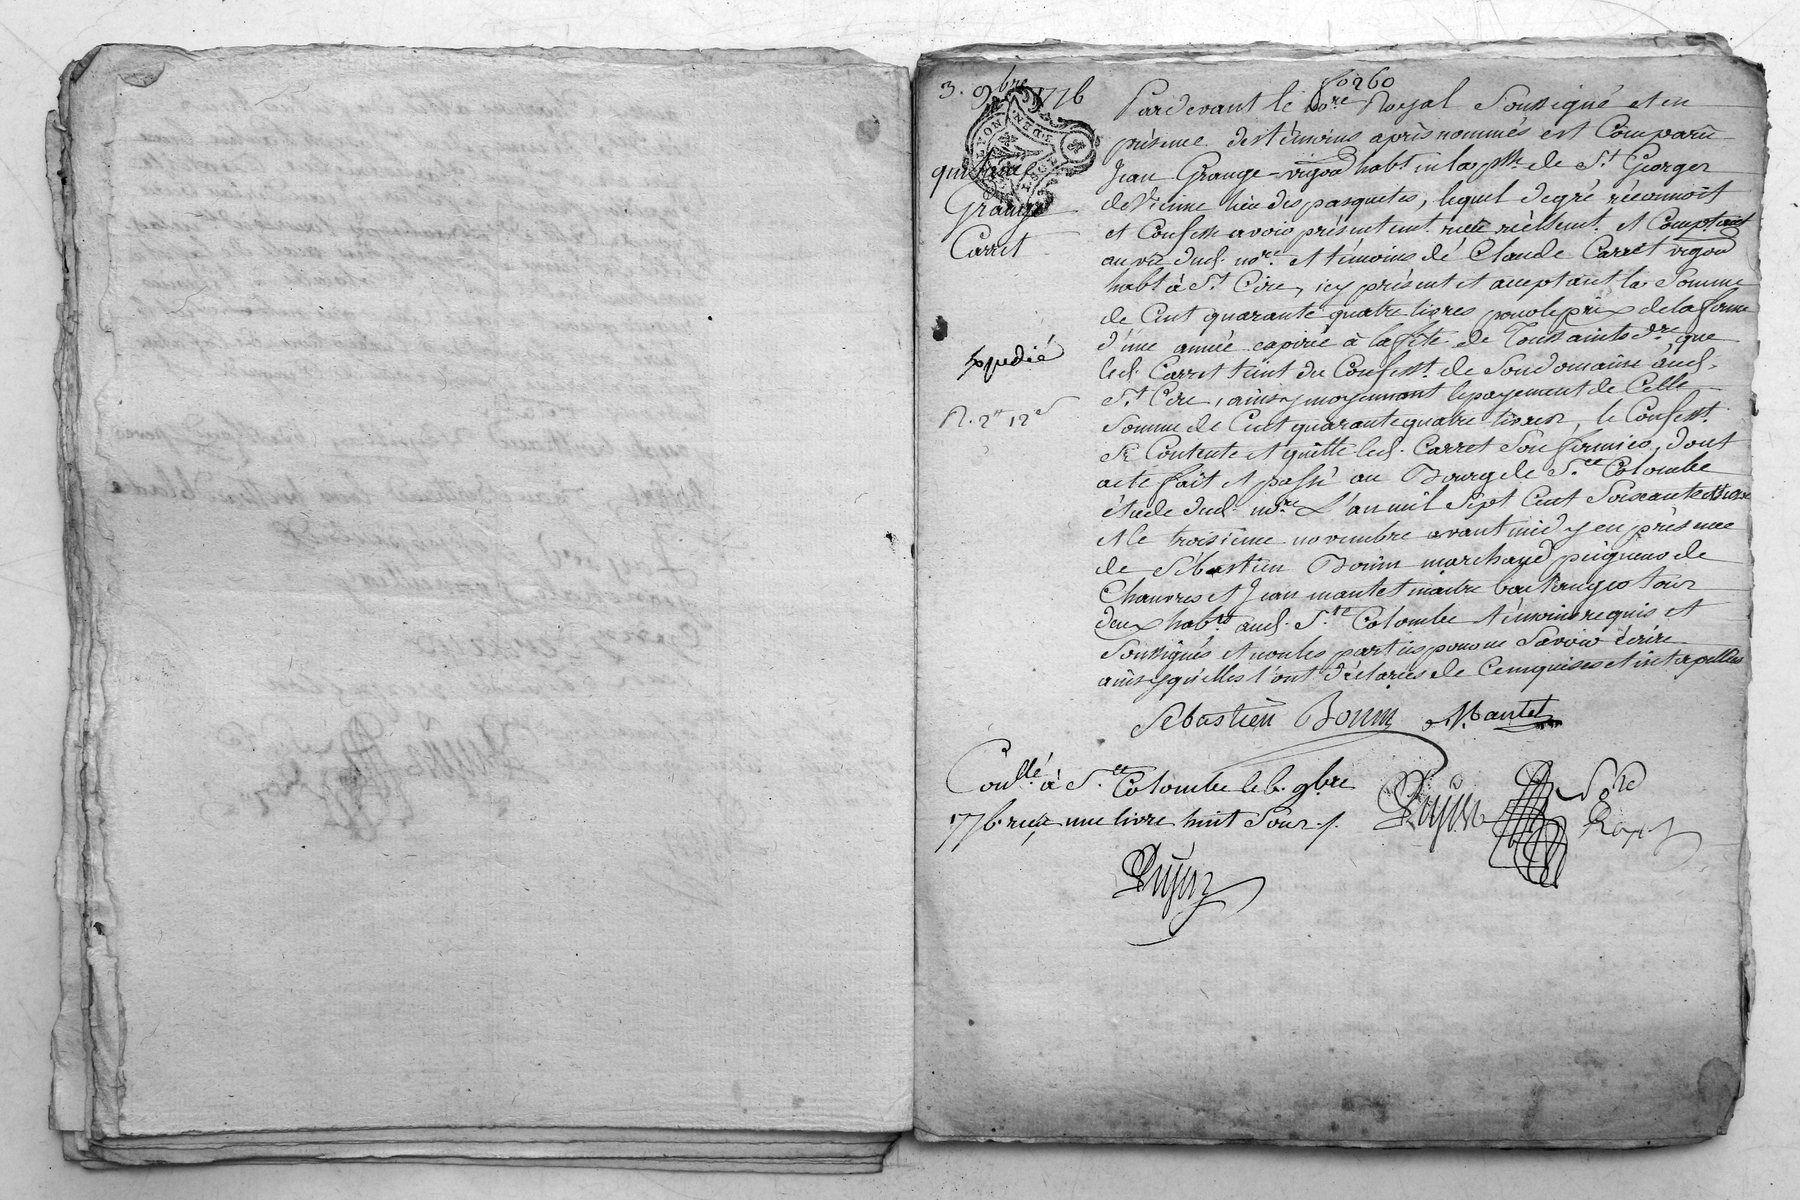 fo 260
3. 9bre 1776
quittance
Grange
Carret
Expedié
R. 2tt 12s
Pardevant le nore Royal Soussigné et en
présence des témoins après nommés est Comparû
Jean Grange vigon habt en la psse de St. Georges
de Vienne lieu des pasquetes, lequel de gré réconnoit
et Confesse avoir présentemt. reçu réèllemt. et Comptant
au vû dud. nore. et témoins dé Claude Carret vigon
habt à St. Cire, icy présent et acceptant la Somme
de Cent quarante quatre livres pour le prix de la ferme
d'une année expirée à la fête de Toussaints dre que
led. Carret tient du Confesst. de Son domaine aud.
St. Cire, ainsy moyennant le payement de Celle
Somme de Cent quarante quatre livres, le Confesst.
Se Contente et quitte led. Carret Son fermier, dont
acte fait et passé au Bourg de Ste. Colombe
étude dud. nore L'an mil Sept Cent Soixante Seize
et le troisième novembre avant midy en présence
de Sébastien Bonin marchand peigneur de
Chanvres et Jean mantet maitre boulanger tous
deux habts aud. Ste. Colombe témoins requis et
Soussignés et non les parties pour ne Savoir écrire
ainsy qu'elles l'ont déclarées de Ce enquises et interpellées
Sébastien Bonin Mantet
Conllé à Ste. Colombe le 6. 9bre
1776. reçu une livre huit Sous
Nore
Royal